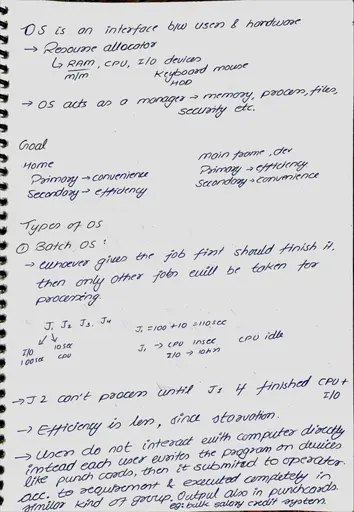 OS is an interface b/w users & hardware
→ Resource allocator
↳ RAM, CPU, I/O devices
m/m Keyboard mouse
HDD
→ OS acts as a manager → memory, process, files,
security etc.
Goal
Home
Primary → convenience
Secondary → efficiency
main frame, dev
Primary → efficiency
Secondary → convenience
Types of OS
① Batch OS :
→ whoever gives the job first should finish it,
then only other jobs will be taken for
processing.
J1 J2 J3 J4
I/O 10sec
100sec CPU
J1 = 100 + 10 = 110sec
J1 → CPU 10sec CPU idle
I/O →
→ J2 can't process until J1 finished CPU +
I/O
→ Efficiency is less, since starvation.
→ Users do not interact with computer directly
instead each user writes the program on devices
like punch cards, then it submitted to operator.
acc. to requirement & executed completely in
similar kind of group. Output also in punchcards.
eg: bulk salary credit system